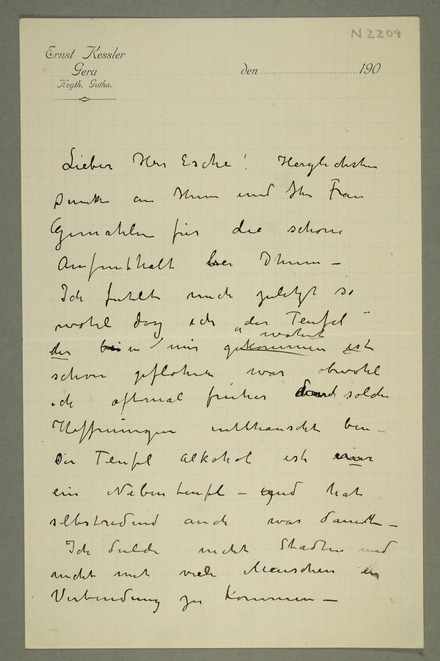 N2209
Ernst Kessler
Gera
Hzgth. Gotha.
den 190
Lieber Herr Esche! Herzlichsten
Danke an Ihnen und Ihr Frau
Gemahlin für die schöne
Aufenthalt bei Ihnen –
Ich fühlte mich zuletzt so
wohl dass ich „der Teufel"
der in mir gekommen ist
wohnt
schon geflohen war obwohl
ich oftmal früher solche
Hoffnungen enttäuscht bin –
Der Teufel Alkohol ist
ein Nebenteufel – und hat
selbstredend auch was damit –
Ich dulde nicht Städte und
nicht mit viele Menschen in
Verbindung zu kommen –